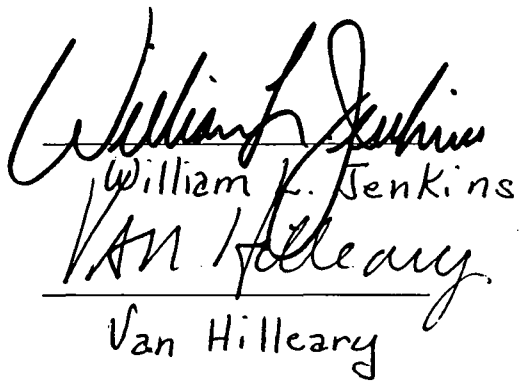 William L Jenkins
William L. Jenkins
Van Hilleary
Van Hilleary